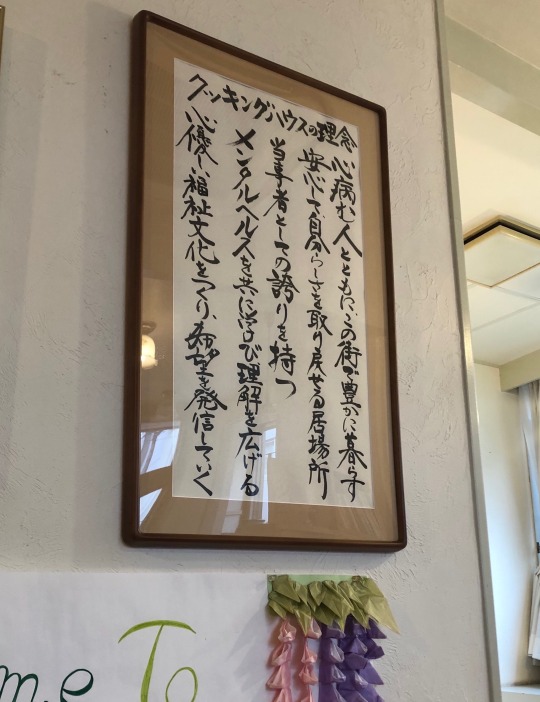 クッキングハウスの理念
心病む人とともに、この街で豊かに暮らす
安心して自分らしさを取り戻せる居場所
当事者としての誇りを持つ
メンタルヘルスを共に学び理解を広げる
心優しい福祉文化をつくり、希望を発信していく
me To